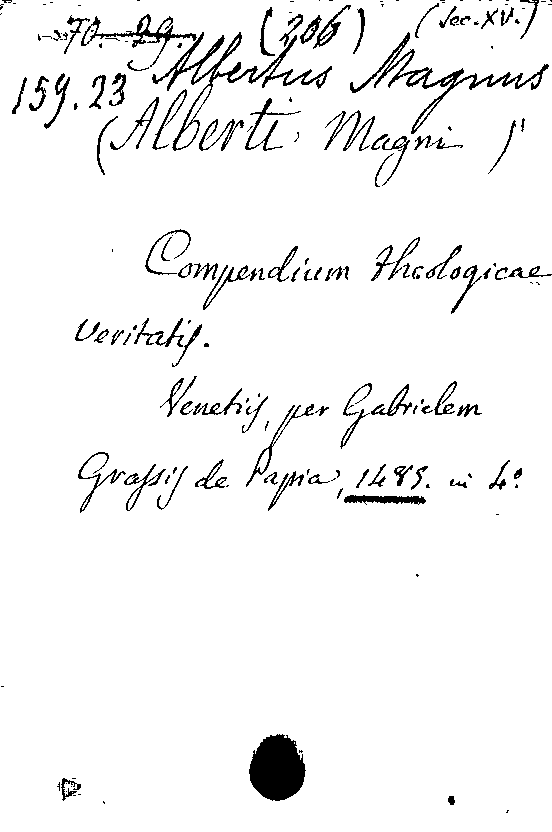 70. 29. (206) (Sec. XV.)
159.23 Albertus Magnus
(Alberti Magni)
Compendium theologicae
veritatis.
Venetiis, per Gabrielem
Grassis de Papia, 1485. in 4º